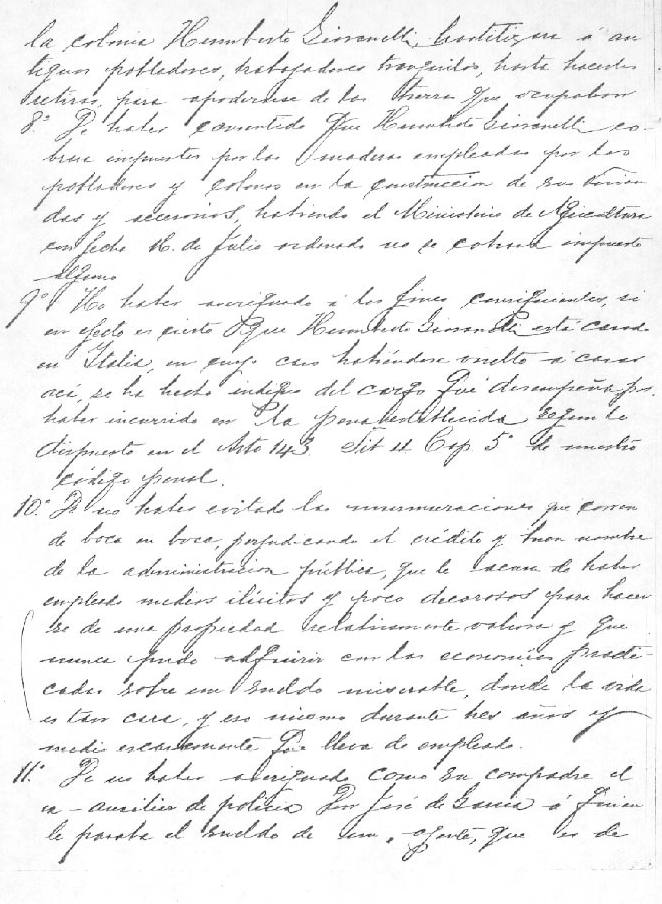 la colonia Humberto Giovanelli hostilizara á an
tiguos pobladores, trabajadores tranquilos, hasta hacerles
retirar, para apoderarse de las tierras que ocupaban
8º. De haber consentido que Humberto Giovanelli co-
brara impuestos por las maderas empleadas por los
pobladores y colonos en la construccion de sus vivien
das y accesorios, habiendo el Ministerio de Agricultura
con fecha 16. de Julio ordenado no se cobrara impuesto
alguno
9º No haber averiguado á los fines consiguientes, si
en efecto es cierto que Humberto Giovanelli está casado
en Italia, en cuyo caso habiéndose vuelto á casar
acá, se ha hecho indigno del cargo que desempeña por
haber incurrido en la pena establecida segun lo
dispuesto en el Arto 143 Tit 4 Cap 5º de nuestro
código penal.
10º. De no haber evitado las murmuraciones que corren
de boca en boca, perjudicando el crédito y buen nombre
de la administracion pública, que le acusa de haber
empleado medios ilícitos y poco decorosos para hacer
se de una propiedad relativamente valiosa y que
nunca pudo adquirir con las economías practi
cadas sobre un sueldo miserable, donde la vida
es tan cara, y eso mismo durante tres años y
medio escasamente que lleva de empleado.
11º. De no haber averiguado como su compadre el
ex-auxiliar de policía Don José de García á
le pasaba el sueldo de un agente, que es de